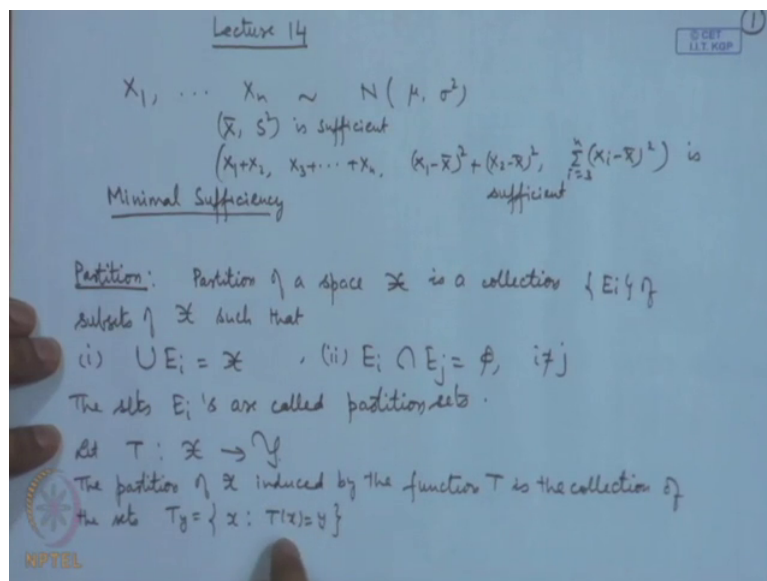 Lecture 14
1
© CET
I.I.T. KGP
X₁, ... Xₙ ~ N(μ, σ²)
(X̄, S²) is sufficient
(X₁+X₂, X₃+⋯+Xₙ, (X₁-X̄)²+(X₂-X̄)², ∑ᵢ₌₃ⁿ(Xᵢ-X̄)²) is
sufficient
Minimal Sufficiency
Partition: Partition of a space 𝒳 is a collection {Eᵢ} of
subsets of 𝒳 such that
(i) ∪Eᵢ = 𝒳, (ii) Eᵢ ∩ Eⱼ = φ, i≠j
The sets Eᵢ's are called partition sets.
Let T : 𝒳 → 𝒴
The partition of 𝒳 induced by the function T is the collection of
the sets T_y = {x : T(x)=y}
NPTEL